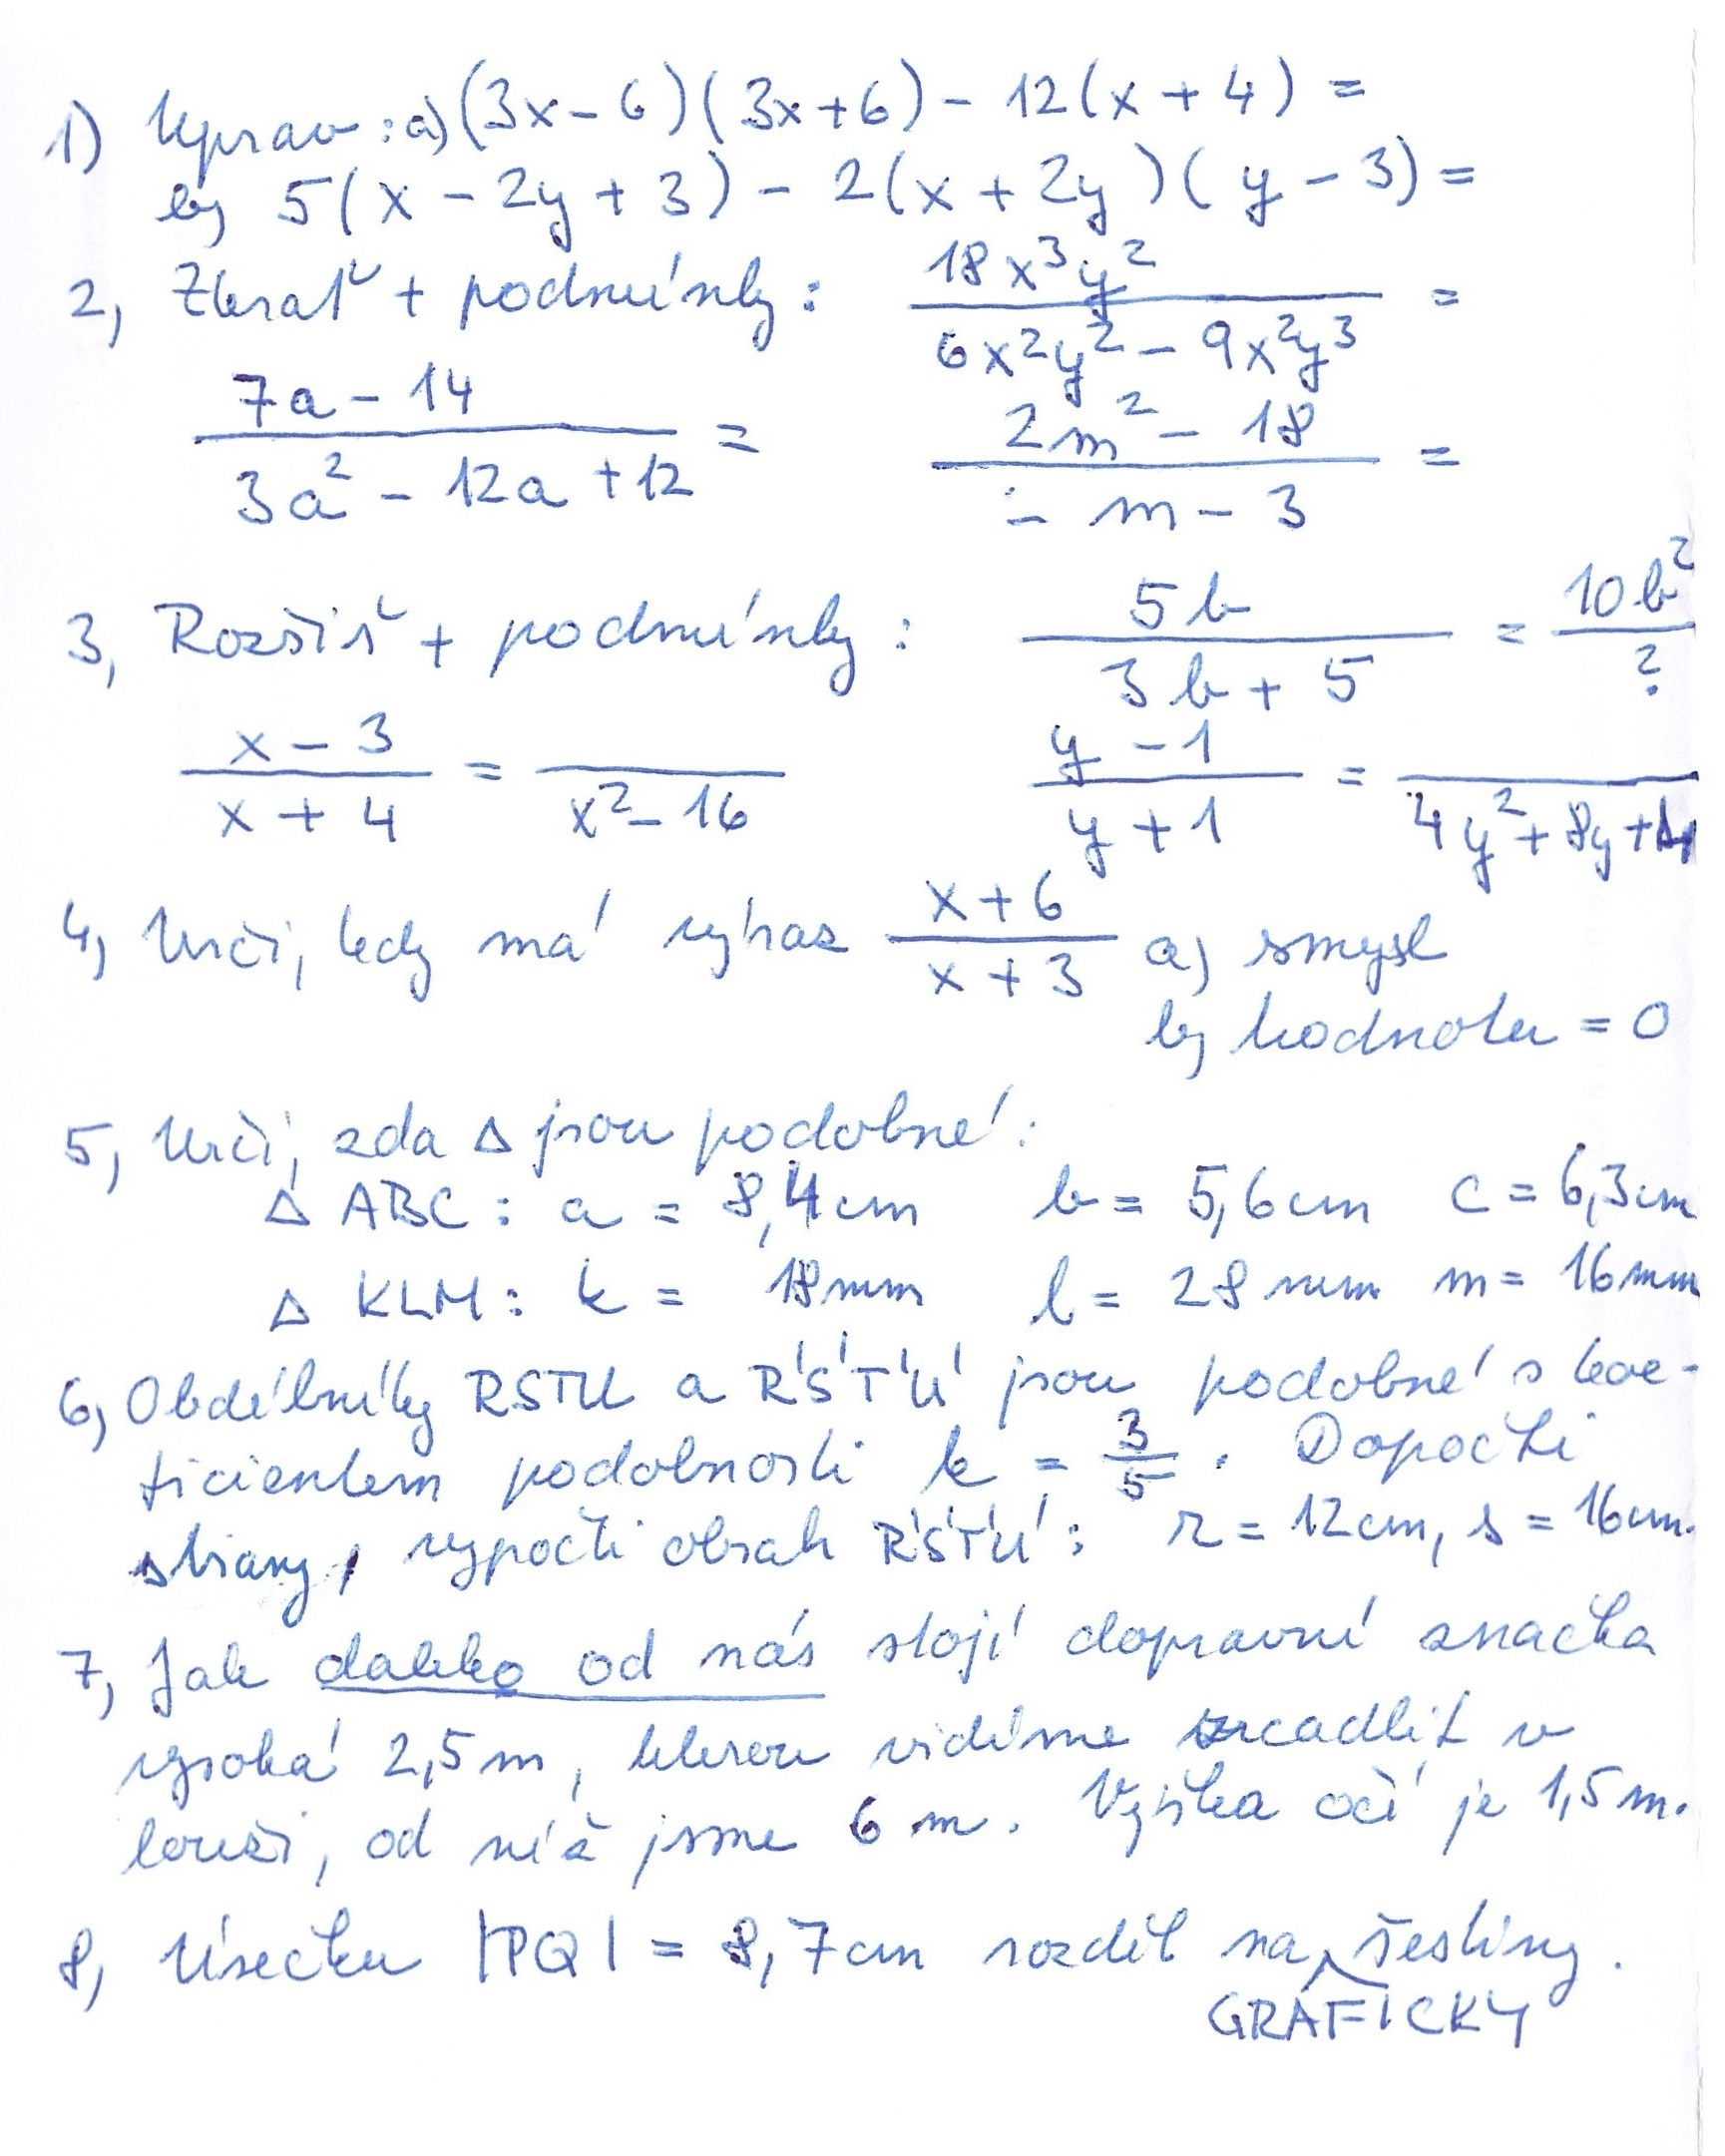 1) Uprav: a) (3x - 6)(3x + 6) - 12(x + 4) =
b) 5(x - 2y + 3) - 2(x + 2y)(y - 3) =
2, Zkrať + podmínky: 18x³y² / 6x²y² - 9x²y³ =
7a - 14 / 3a² - 12a + 12 = 2m² - 18 / - m - 3 =
3, Rozšiř + podmínky: 5b / 3b + 5 = 10b² / ?
x - 3 / x + 4 = / x² - 16 y - 1 / y + 1 = / 4y² + 8y + 4
4, Urči, kdy má výraz x + 6 / x + 3 a) smysl
b) hodnotu = 0
5, Urči, zda Δ jsou podobné:
Δ ABC: a = 8,4cm b = 5,6cm c = 6,3cm
Δ KLM: k = 18mm l = 28mm m = 16mm
6, Obdélníky RSTU a R'S'T'U' jsou podobné s koe-
ficientem podobnosti k = 3/5. Dopočti
strany, vypočti obsah R'S'T'U': r = 12cm, s = 16cm.
7, Jak daleko od nás stojí dopravní značka
vysoká 2,5m, kterou vidíme zrcadlit v
louži, od níž jsme 6 m. Výška očí je 1,5m.
8, Úsečku |PQ| = 8,7cm rozděl na šestiny.
GRAFICKY